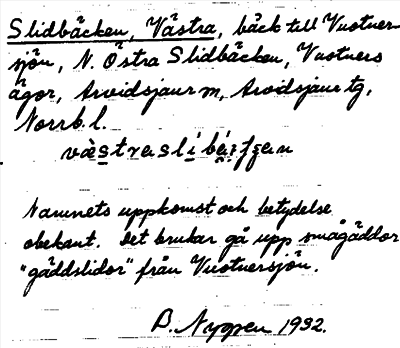 Slidbäcken, Västra, bäck till Vustner-
sjön, N. Östra Slidbäcken, Vustners
ägor, Arvidsjaur sn, Arvidsjaur tg,
Norrb. l.
Namnets uppkomst och betydelse
obekant. Det brukar gå upp smågäddor
"gäddslidor" från Vustnersjön.
B. Nygren 1932.